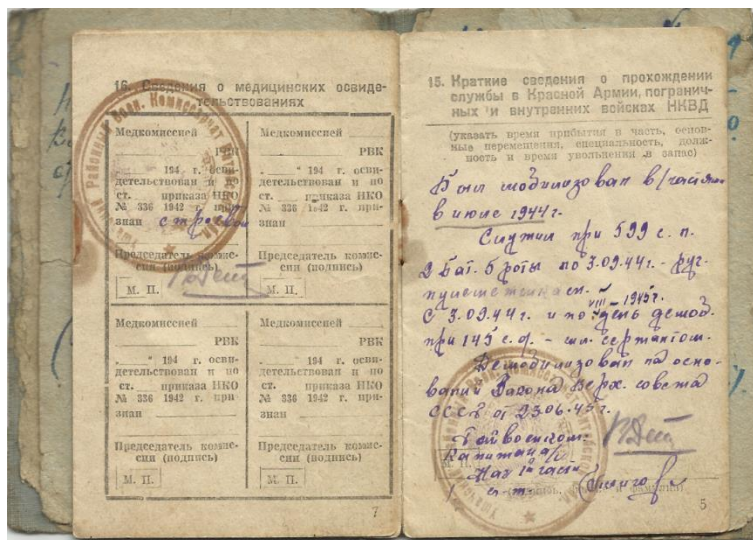 16. Сведения о медицинских освиде-
тельствованиях
Медкомиссией
РВК
„ " 194 г. осви-
детельствован и по
ст. приказа НКО
№ 336 1942 г. при-
знан строевой
Председатель комис-
сии (подпись)
М. П.
Медкомиссией
РВК
„ " 194 г. осви-
детельствован и по
ст. приказа НКО
№ 336 1942 г. при-
знан
Председатель комис-
сии (подпись)
М. П.
Медкомиссией
РВК
„ " 194 г. осви-
детельствован и по
ст. приказа НКО
№ 336 1942 г. при-
знан
Председатель комис-
сии (подпись)
М. П.
Медкомиссией
РВК
„ " 194 г. осви-
детельствован и по
ст. приказа НКО
№ 336 1942 г. при-
знан
Председатель комис-
сии (подпись)
М. П.
7
Районный Воен. Комиссариат
15. Краткие сведения о прохождении
службы в Красной Армии, погранич-
ных и внутренних войсках НКВД
(указать время прибытия в часть, основ-
ные перемещения, специальность, долж-
ность и время увольнения в запас)
Был мобилизован в/
в июле 1944 г.
Служил при 599 с. п.
2 Бат. 5 роты по 3.09.44 г. - руч.
VIII - 1945 г.
С 3.09.44 г. и по день демоб.
при 145 с. д. - мл. сержантом.
Демобилизован на осно-
вании Закона Верх. совета
СССР от 23.06.45 г.
Райвоенком
Капитан а/с
М. П.
Нач. части
5